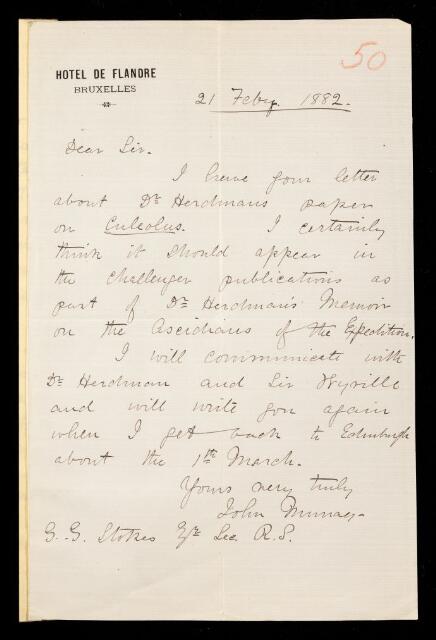 50
HOTEL DE FLANDRE
BRUXELLES
21 Feby. 1882.
Dear Sir.
I have your letter
about Dr Herdmans paper
on Culeolus. I certainly
think it should appear in
the Challenger publications as
part of Dr Herdman's Memoir
on the Ascidians of the Expedition.
I will communicate with
Dr Herdman and Sir Wyville
and will write you again
when I get back to Edinburgh
about the 1st March.
Yours very truly
John Murray
G. G. Stokes Sec R. S.